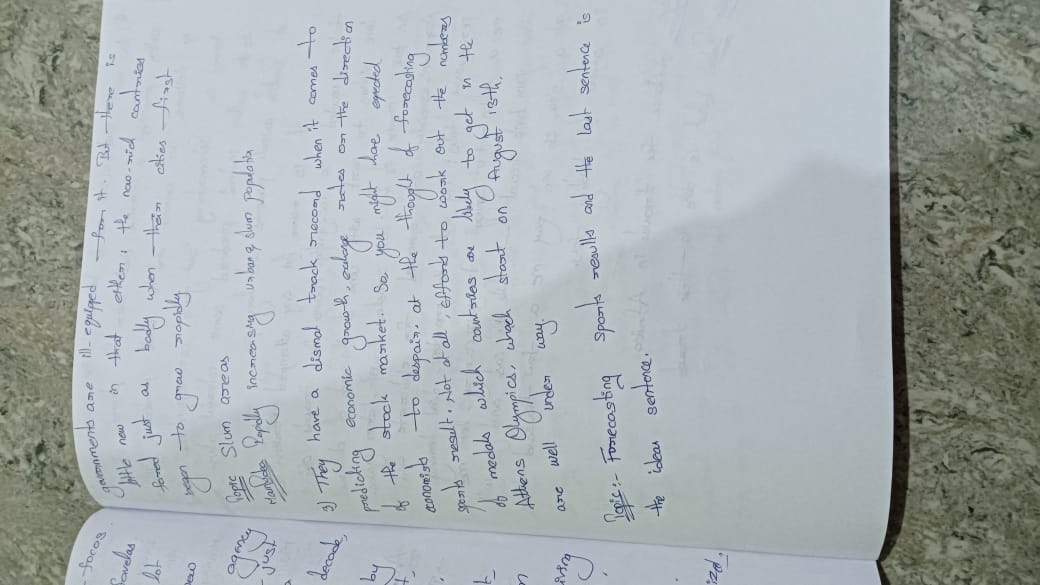 governments are ill-equipped form it. But there is
little new in that either; the now-rich countries
fared just as badly when their cities first
began to grow rapidly.
Topic Slum areas
Rapidly increasing urban & slum populatia
3) They have a dismal track record when it comes to
predicting economic growth, exchange rates or the direction
of the stock market. So, you might have expected
economists to despair, at the thought of forecasting
sports result. Not at all efforts to work out the numbers
of medals which countries are likely to get in the
Athens Olympics, which start on August 13th.
are well under way.
Topic:- Forecasting sports results and the last sentence is
the ideas sentence.
focas
favelas
lot
agency
just
decade,
by